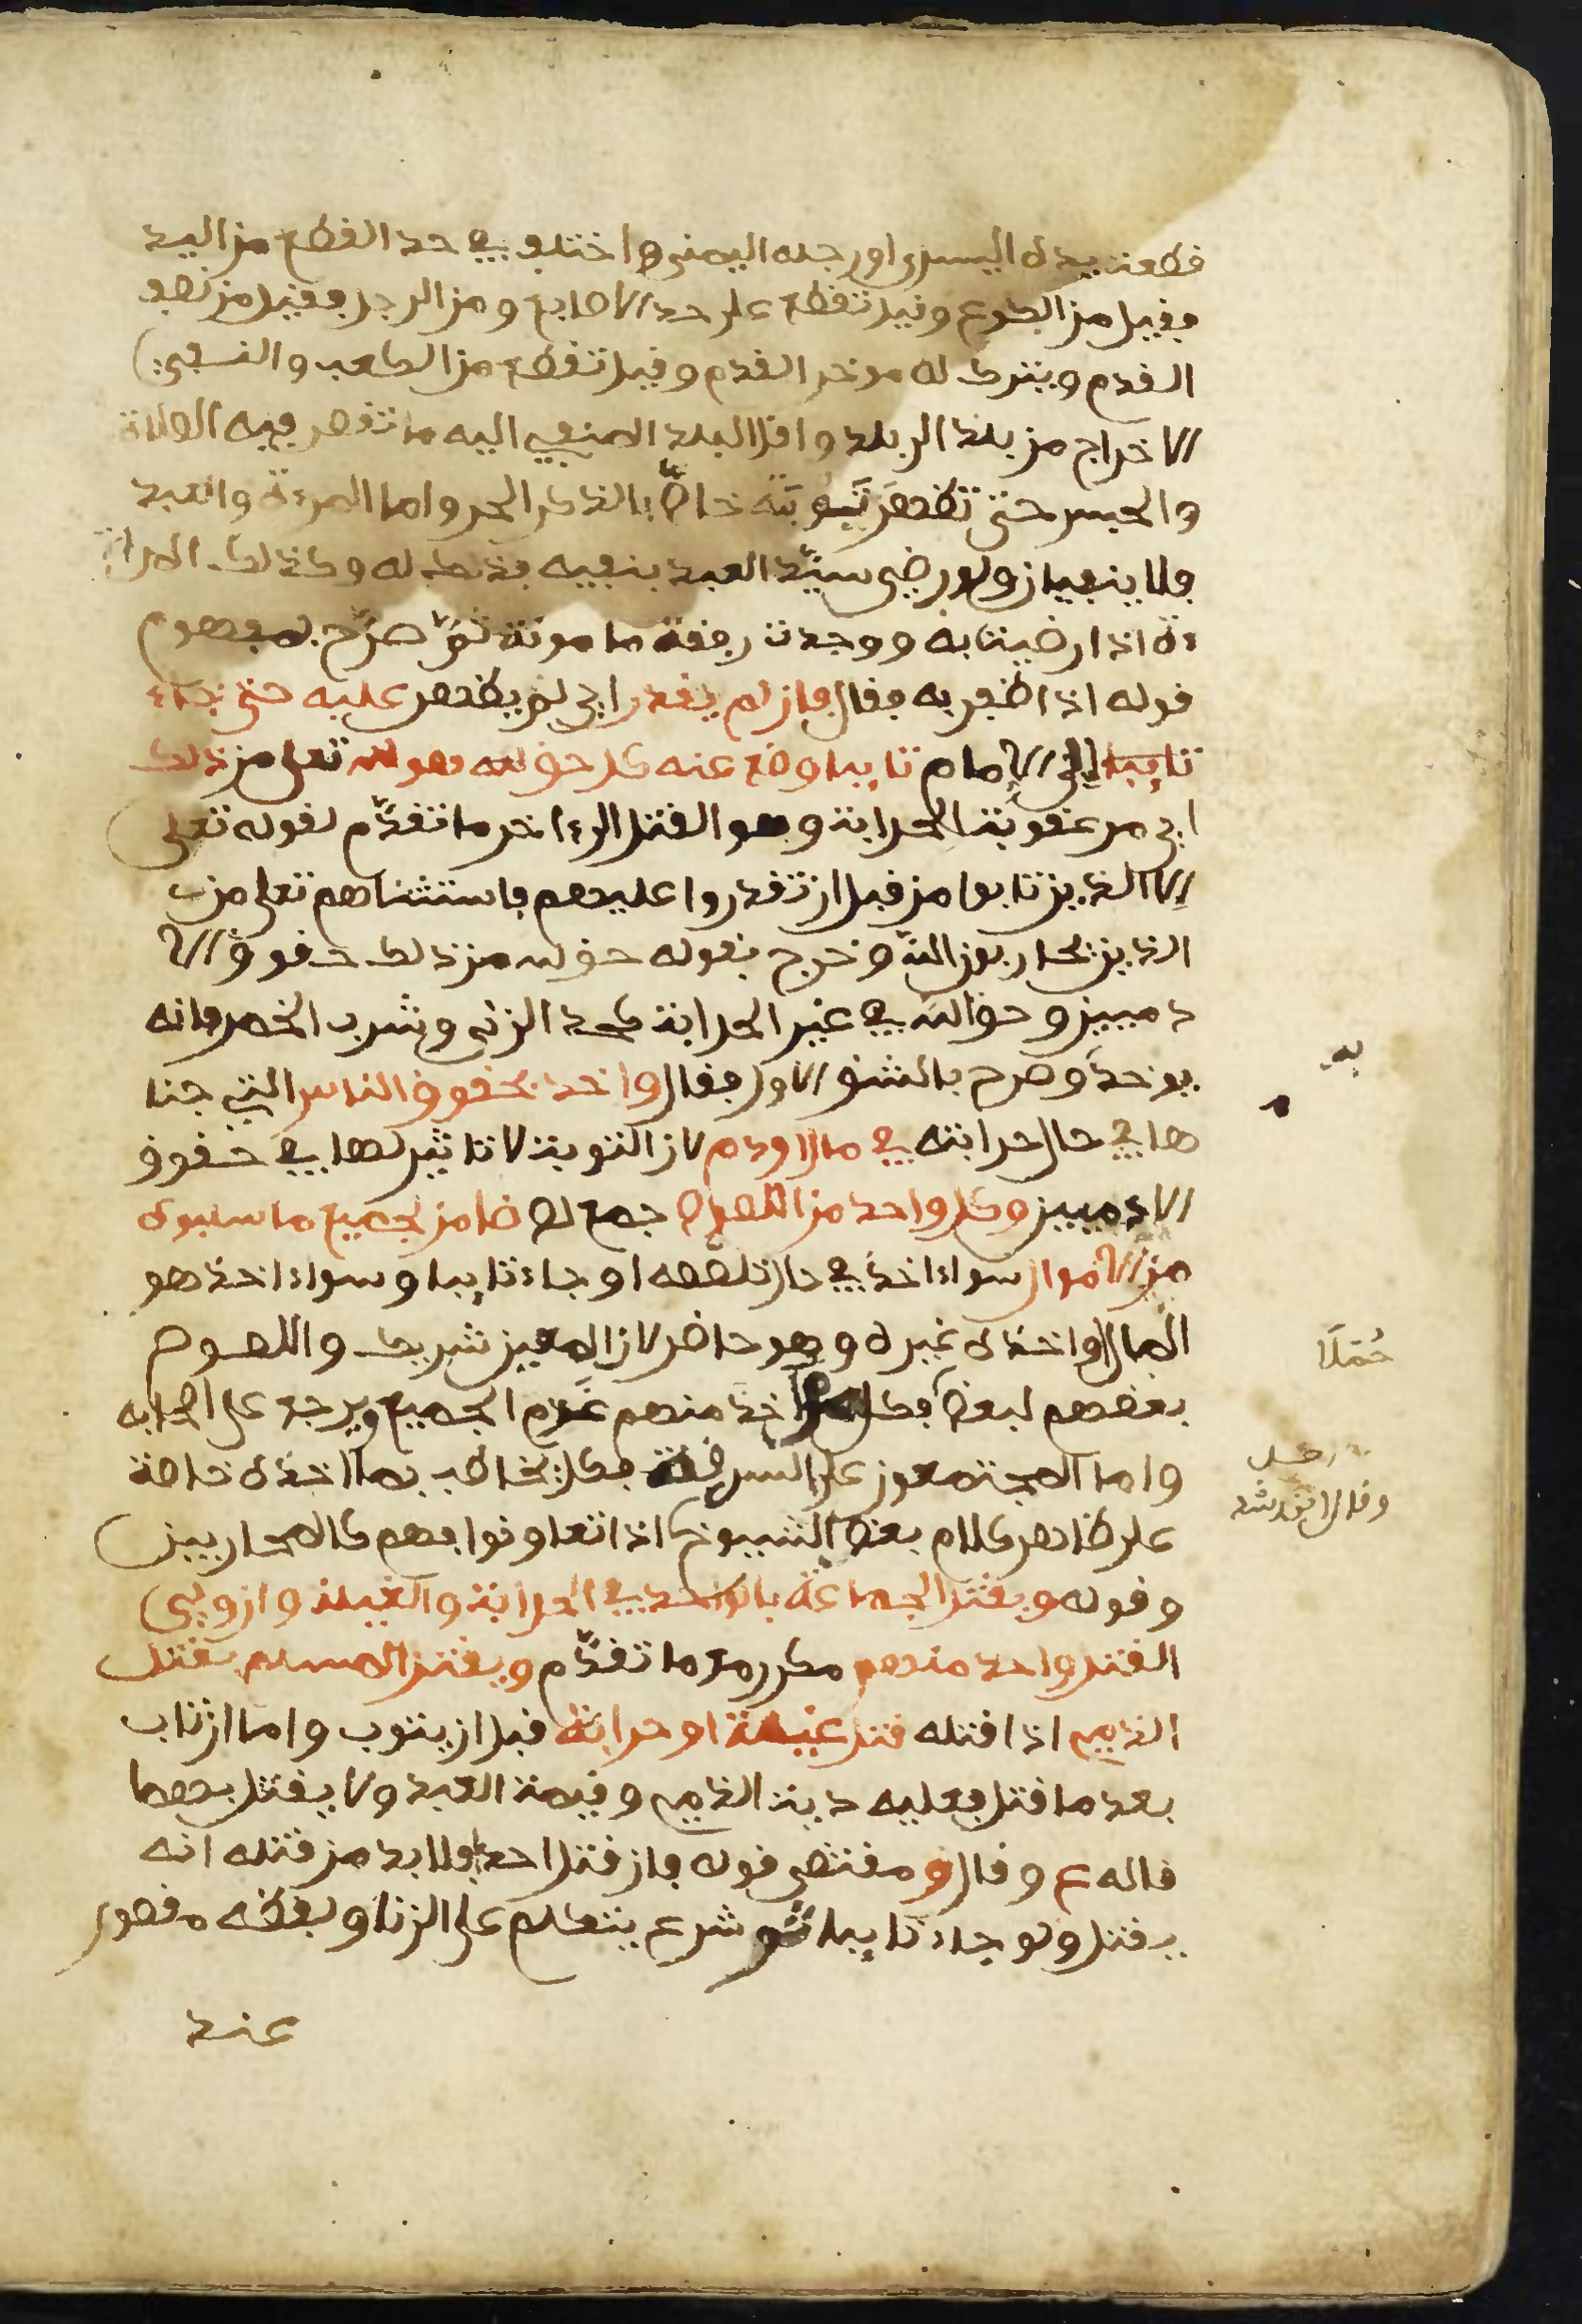 قطعت يده اليسرى او رجله اليمنى واختلف في حد القطع من اليد
فقيل من الكوع وقيل تقطع على حد الاصابع ومن الرجل فقيل من نصف
القدم ويترك له موخر القدم وقيل تقطع من الكعب والنفي
الاخراج من بلد الى بلد واقل البلد المنفي اليه ما تقصر فيه الصلاة
والحبس حتى تظهر توبته خاص بالذكر الحر واما المرءة والعبد
فلا ينفيان ولو رضي سيد العبد بنفيه فذلك له وكذلك المرا
ءة اذا رضيت به ووجدت رفقة مامونة ثم صرح بمفهوم
قوله اذا ظفر به فقال فان لم يقدر اي لم يظهر عليه حتى جاء
تايبا الى الامام تايبا وضع عنه كل حق لله هو لله تعلى من ذلك
اي من عقوبة الحرابة وهو القتل الى ءاخر ما تقدم لقوله تعلى
الا الذين تابوا من قبل ان تقدروا عليهم فاستثناهم تعلى من
الذين يحاربون الله وخرج بقوله حق لله من ذلك حقوق الا
دميين وحق الله في غير الحرابة كحد الزنى وشرب الخمر فانه
يوخذ وصرح بالشق الاول فقال واخذ بحقوق الناس التي جنا
ها في حال حرابته في مال او دم لان التوبة لا تاثير لها في حقوق
الادميين وكل واحد من اللصوص جمع لص ضامن لجميع ما سلبوه
من الاموال سواء اخذ في حال تلصصه او جاء تايبا وسواء اخذ هو
المال او اخذه غيره وهو حاضر لان المعين شريك واللصوص
بعضهم لبعض فكل من اخذ منهم غرم الجميع ويرجع على اصحابه
واما المجتمعون على السرقة فكل يخاطب بما اخذه خاصة
على ظاهر كلام بعض الشيوخ اذا تعاونوا فهم كالمحاربين
وقوله ويقتل الجماعة بالواحد في الحرابة والغيلة وان ولي
القتل واحد منهم مكرر مع ما تقدم ويقتل المسلم بقتل
الذمي اذا قتله قتل غيلة او حرابة قبل ان يتوب واما ان تاب
بعد ما قتل فعليه دية الذمي وقيمة العبد ولا يقتل بهما
قاله ع وقال ق ومقتضى قوله فان قتل احدا فلا بد من قتله انه
يقتل ولو جاء تايبا ثم شرع يتكلم على الزنا وبعضه مقصور
عند